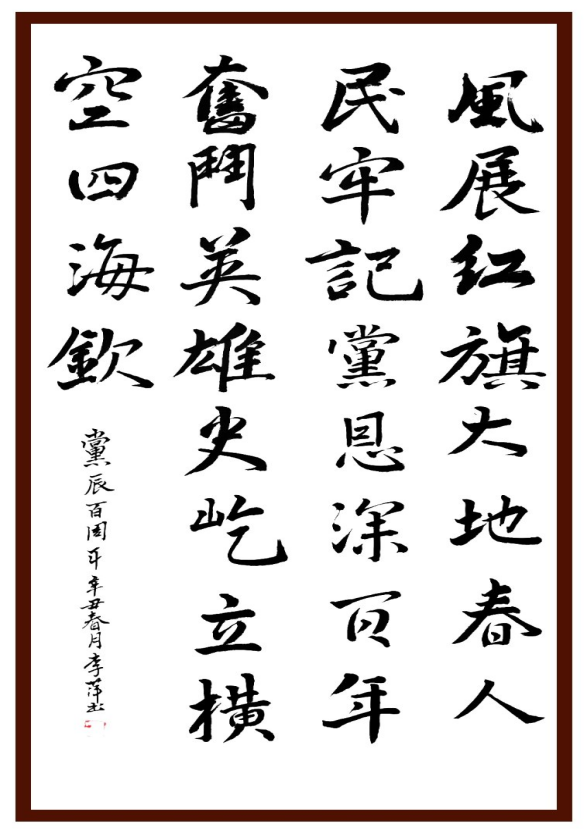 風展红旗大地春人
民牢記黨恩深百年
奮鬥英雄史屹立橫
空四海欽
黨辰百周年辛丑春月李萍书